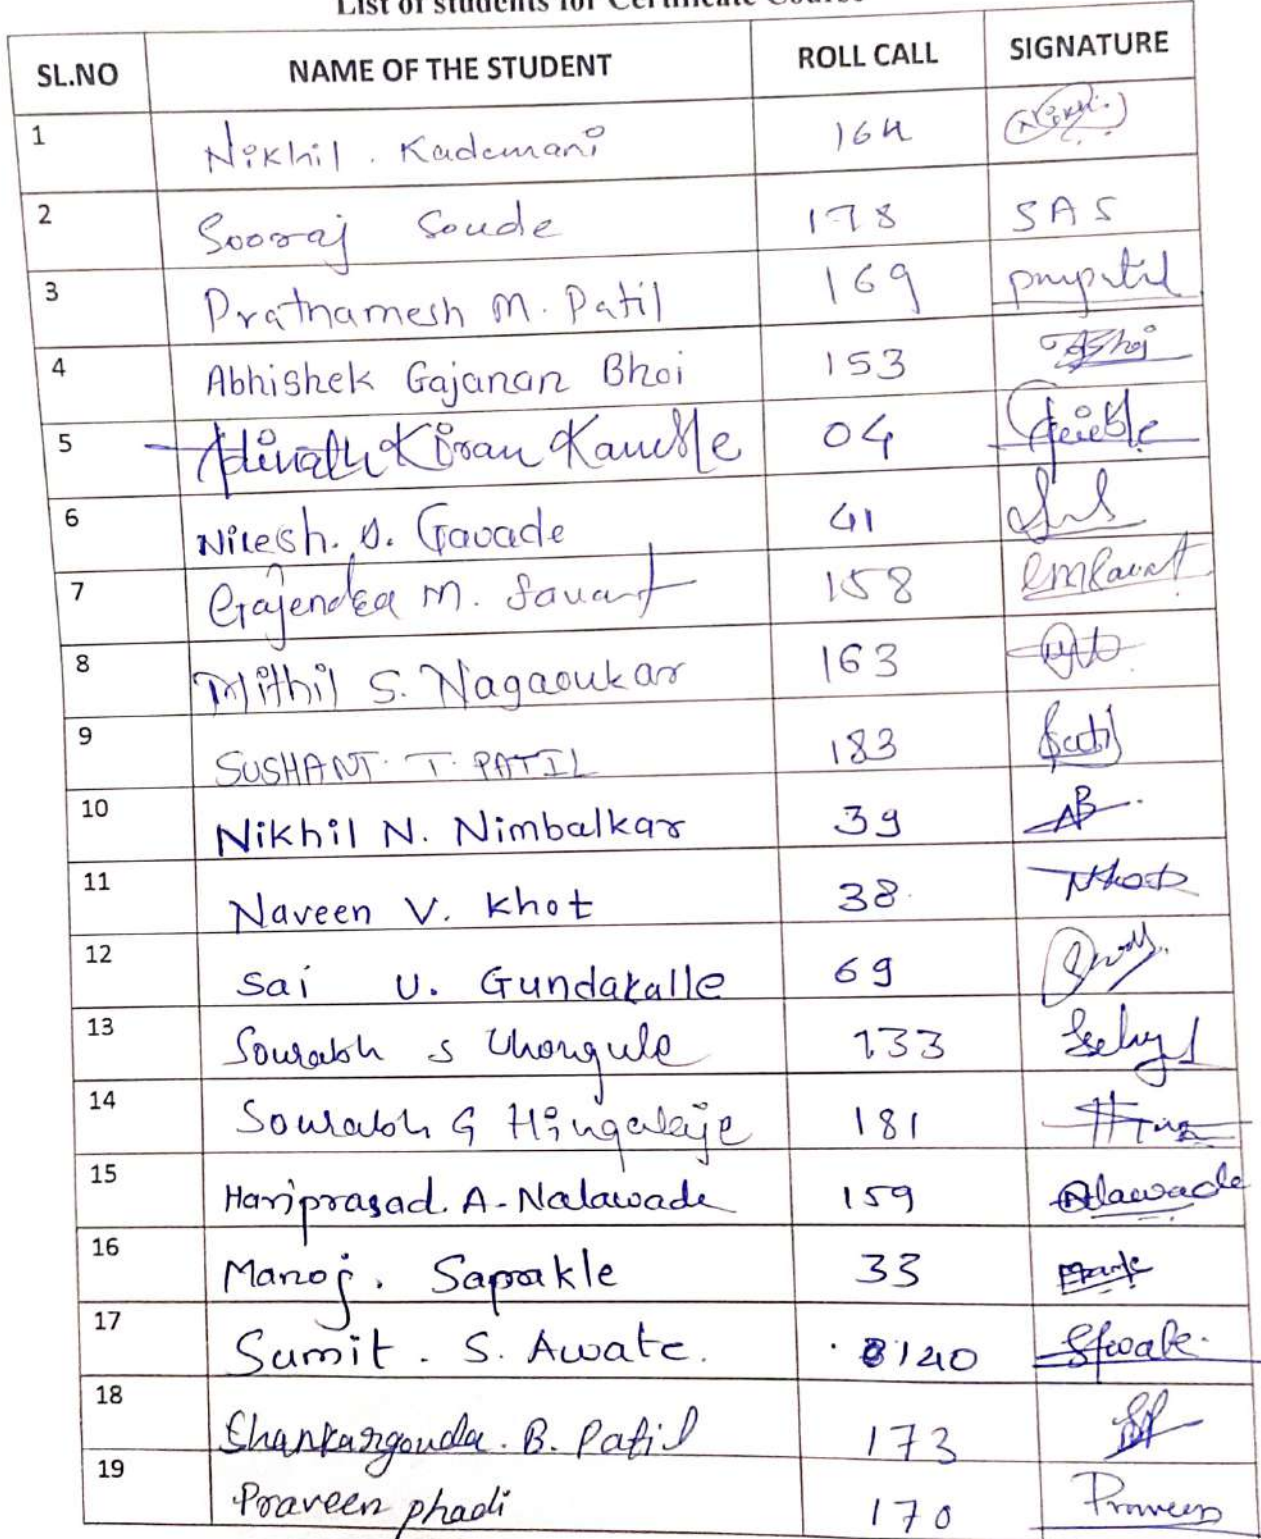 List of students for Certificate Course
SL.NO NAME OF THE STUDENT ROLL CALL SIGNATURE
1 Nikhil . Kademani 164
2 Sooraj Soude 178 SAS
3 Prathamesh M. Patil 169 pmpatil
4 Abhishek Gajanan Bhoi 153 ABhoi
5 Kiran Kamble 04
6 Nilesh. D. Gavade 41
7 Gajendra M. Savant 158 GMSavant
8 Mithil S. Nagaoukar 163
9 SUSHANT. T. PATIL 183 Patil
10 Nikhil N. Nimbalkar 39
11 Naveen V. Khot 38. NKhot
12 Sai U. Gundakalle 69
13 Sourabh S Chougule 133
14 Sourabh G Hingalaje 181
15 Hariprasad. A. Nalawade 159 Nalawade
16 Manoj . Sapakle 33
17 Sumit . S. Awate. 140 SAwate.
18 Shankargouda. B. Patil 173
19 Praveen phadi 170 Praveen